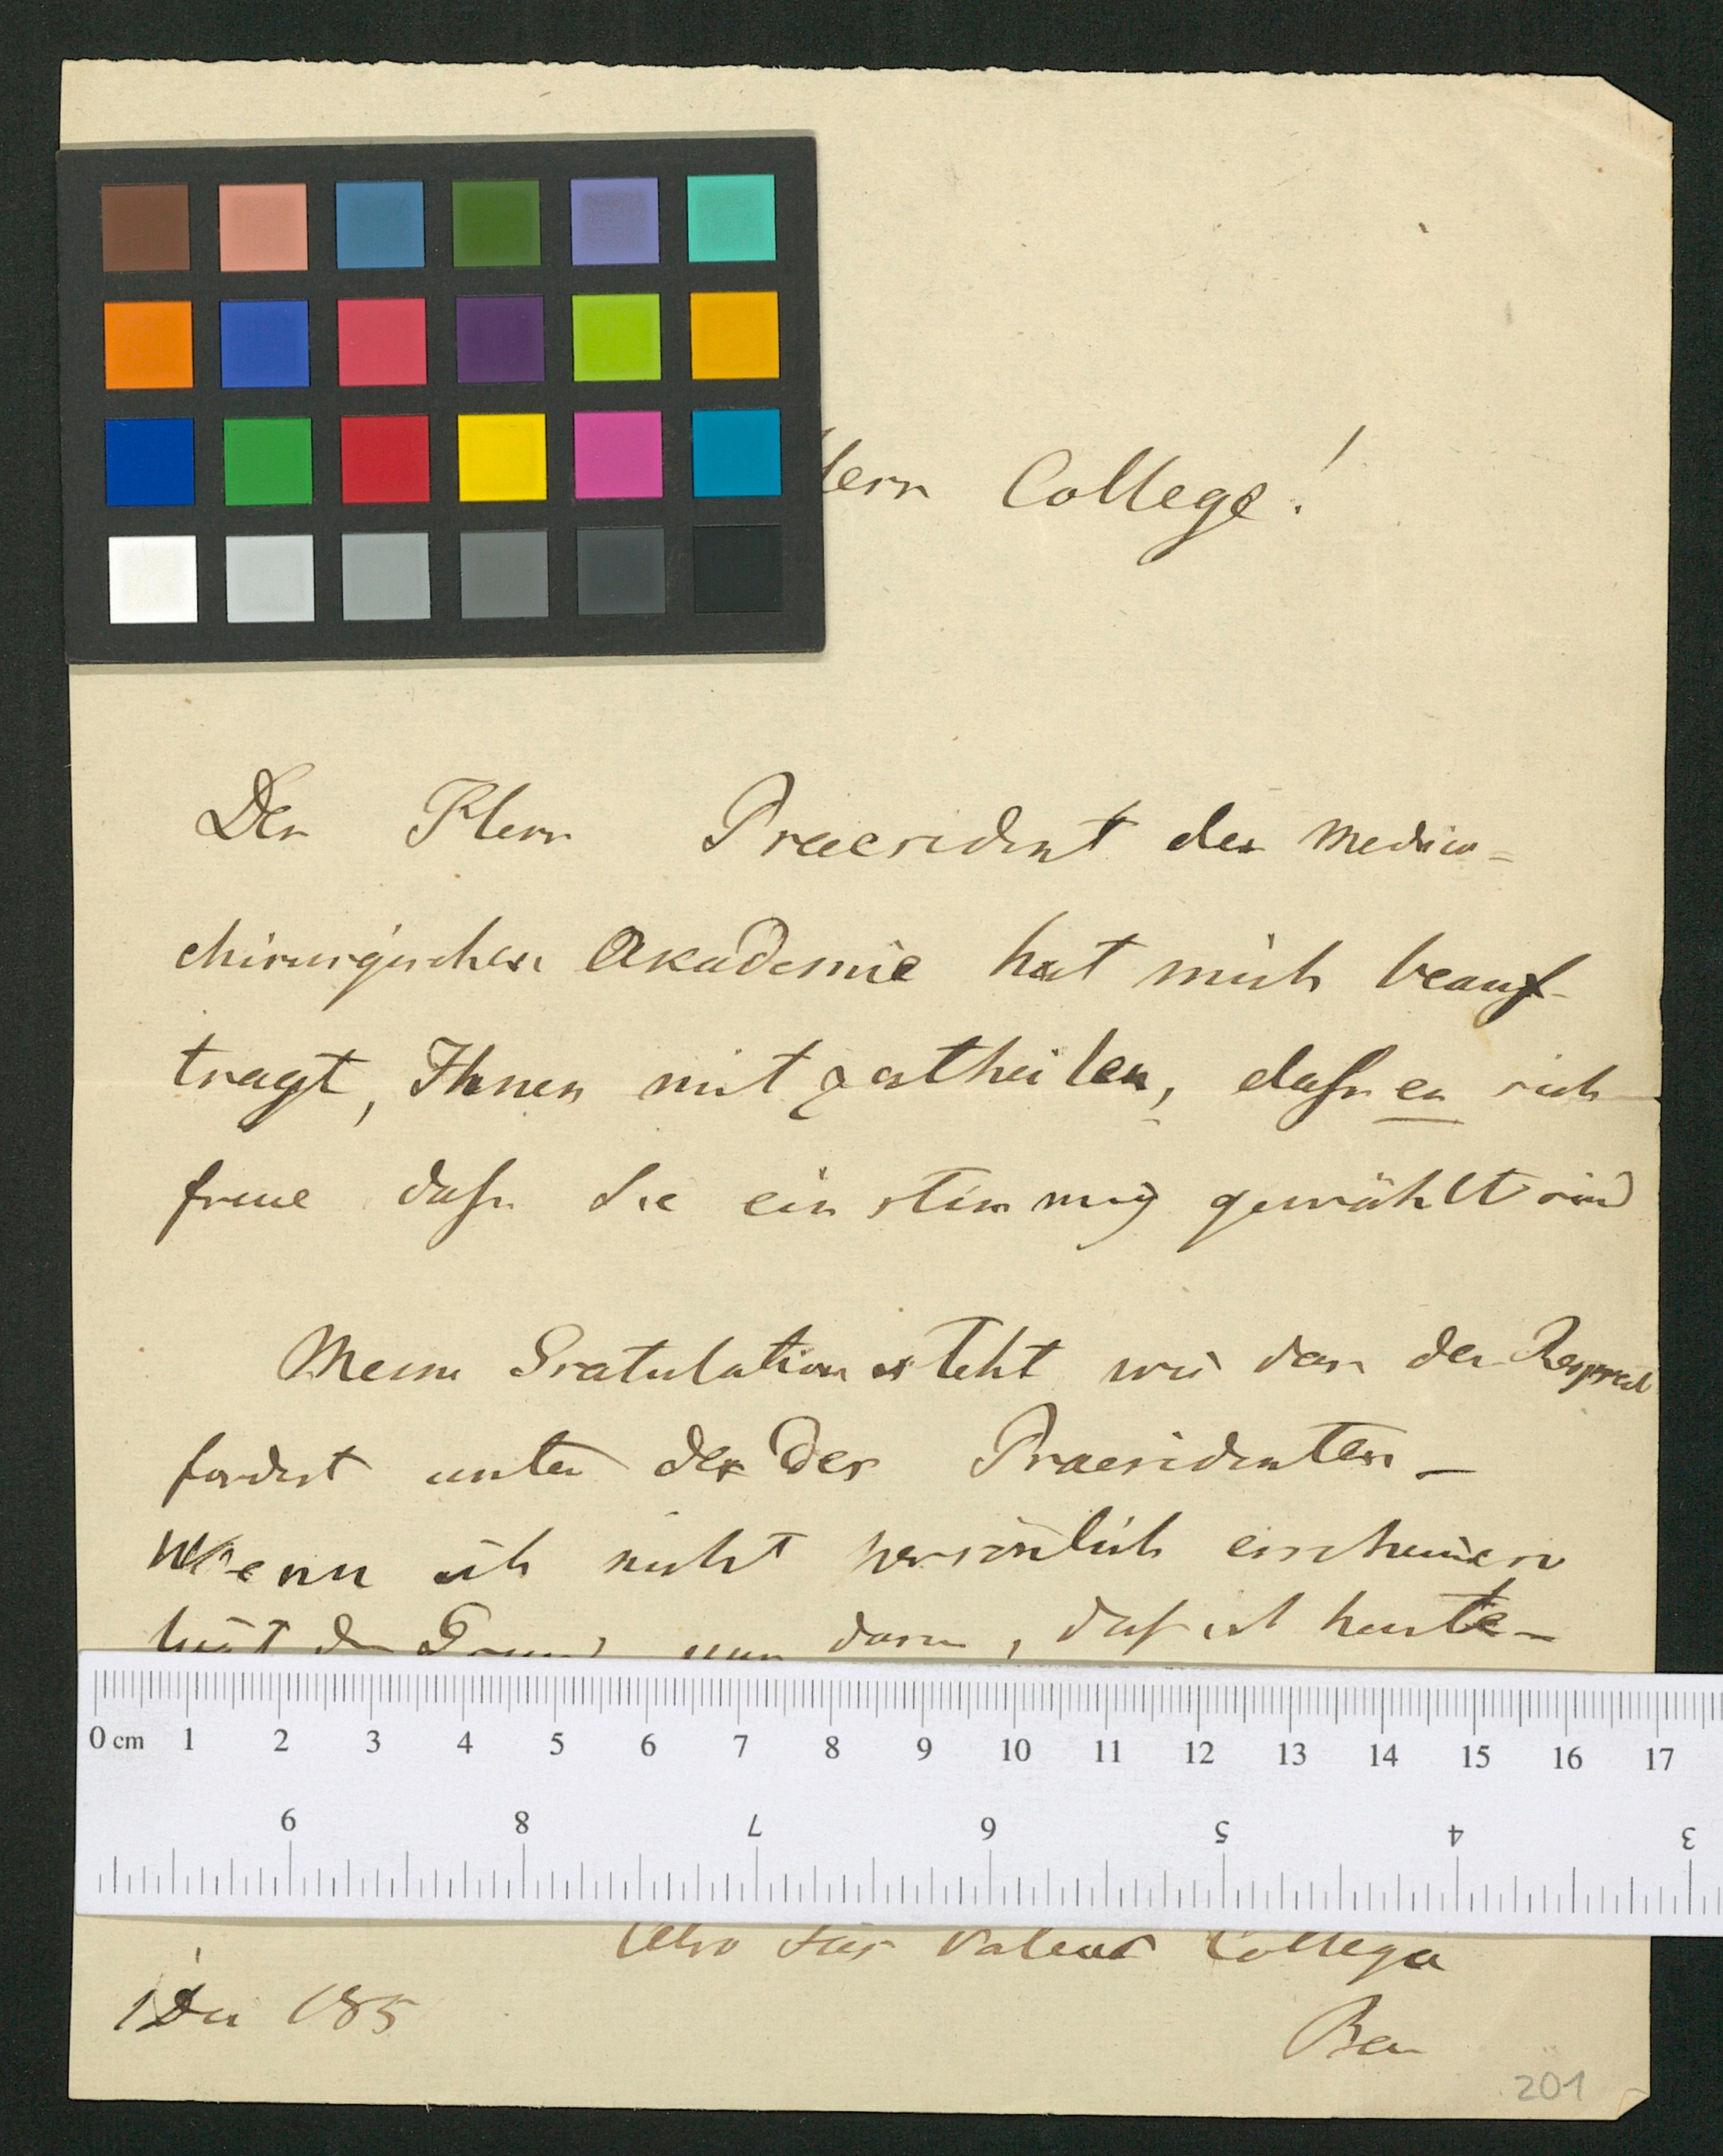 Herr College!
Der Herr Praesident der medico-
chirurgischen Akademie hat mich beauf-
tragt, Ihnen mitzutheilen, dass er sich
freue dass Sie einstimmig gewählt sind
Meine Gratulation steht wie der Respect
fordert unter der des Praesidenten –
Wenn ich nicht persönlich erscheinen
liegt der Grund nur darin, dass ich heute –
0 cm 1 2 3 4 5 6 7 8 9 10 11 12 13 14 15 16 17
9 8 7 6 5 4 3
Collega
1 185
201